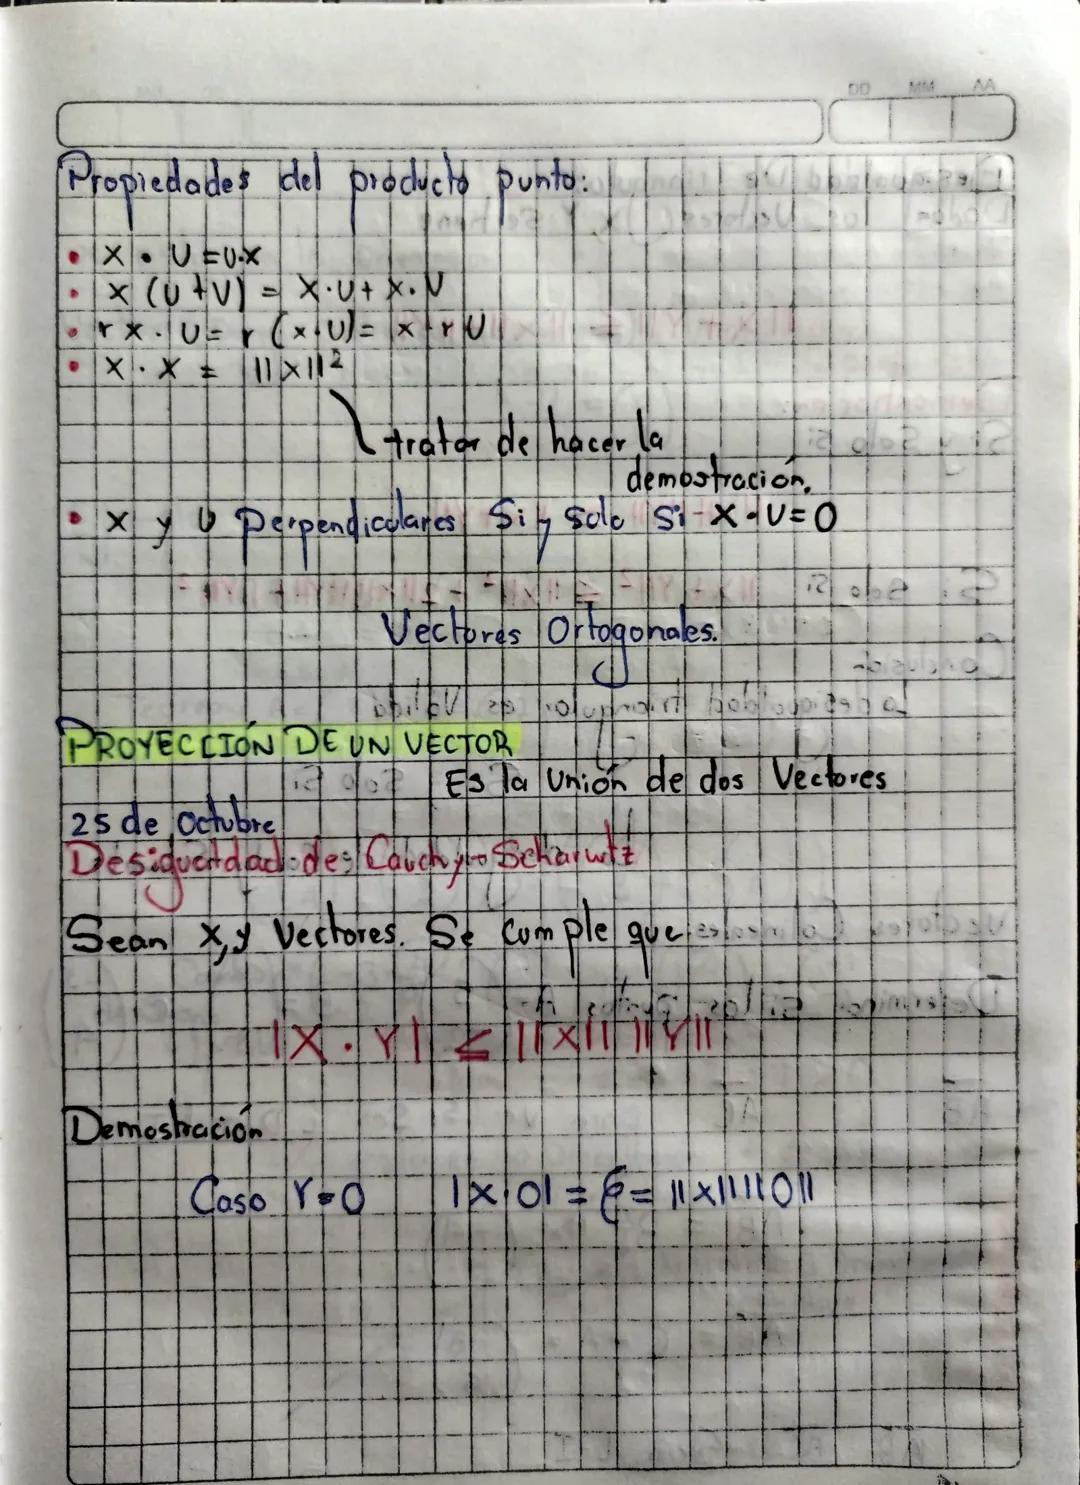 DD MM AA
Propiedades del producto punto:
• X • U = U·X
• X (U + V) = X·U + X·V
• r X · U = r (X·U) = X · r U
• X · X = ||X||²
tratar de hacer la
demostración.
• X y U perpendiculares Si y solo Si X·U=0
Vectores Ortogonales.
PROYECCIÓN DE UN VECTOR
Es la Unión de dos Vectores
25 de Octubre
Desigualdad de: Cauchy - Scharwtz
Sean X,y Vectores. Se cumple que
|X · Y| ≤ ||X|| ||Y||
Demostración
Caso Y=0 |X·0| = = ||X|| ||0||